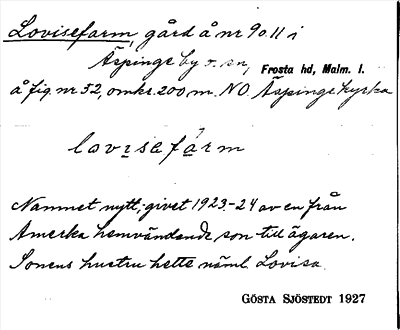 Lovisefarm, gård å nr 9o.11 i
Äspinge by o. sn, Frosta hd, Malm. l.
å fig. nr 52, omkr. 200 m. NO. Äspinge kyrka
lovisefarm
Namnet nytt, givet 1923-24 av en från
Amerka hemvändande son till ägaren.
Sonens hustru hette näml. Lovisa.
GÖSTA SJÖSTEDT 1927